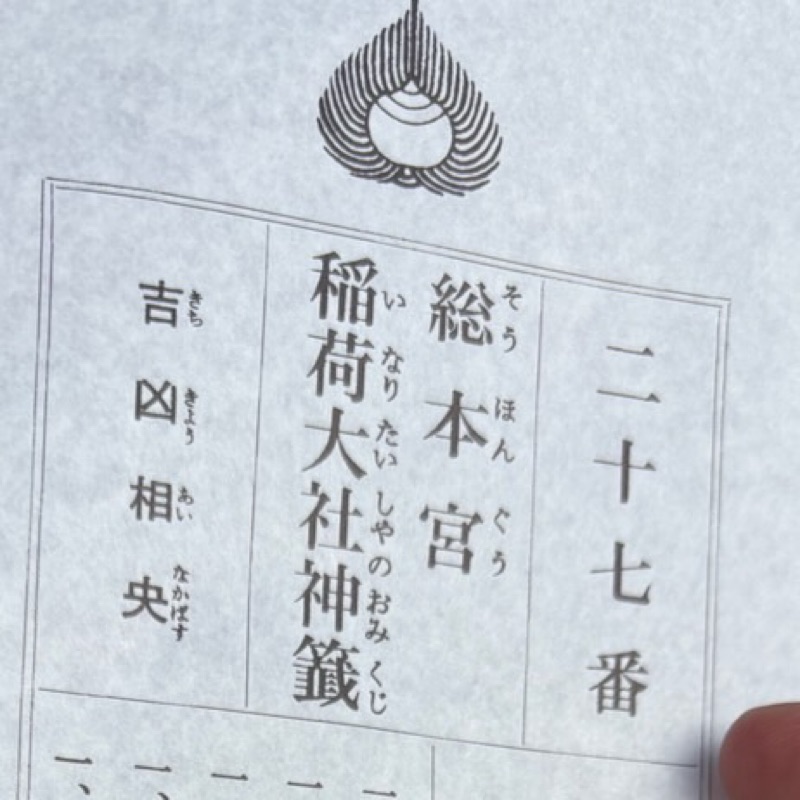 二十七番
総本宮
そうほんぐう
稲荷大社神籤
いなりたいしゃのおみくじ
吉凶相央
きちきょうあいなかばす
一
一
一
一、
一、